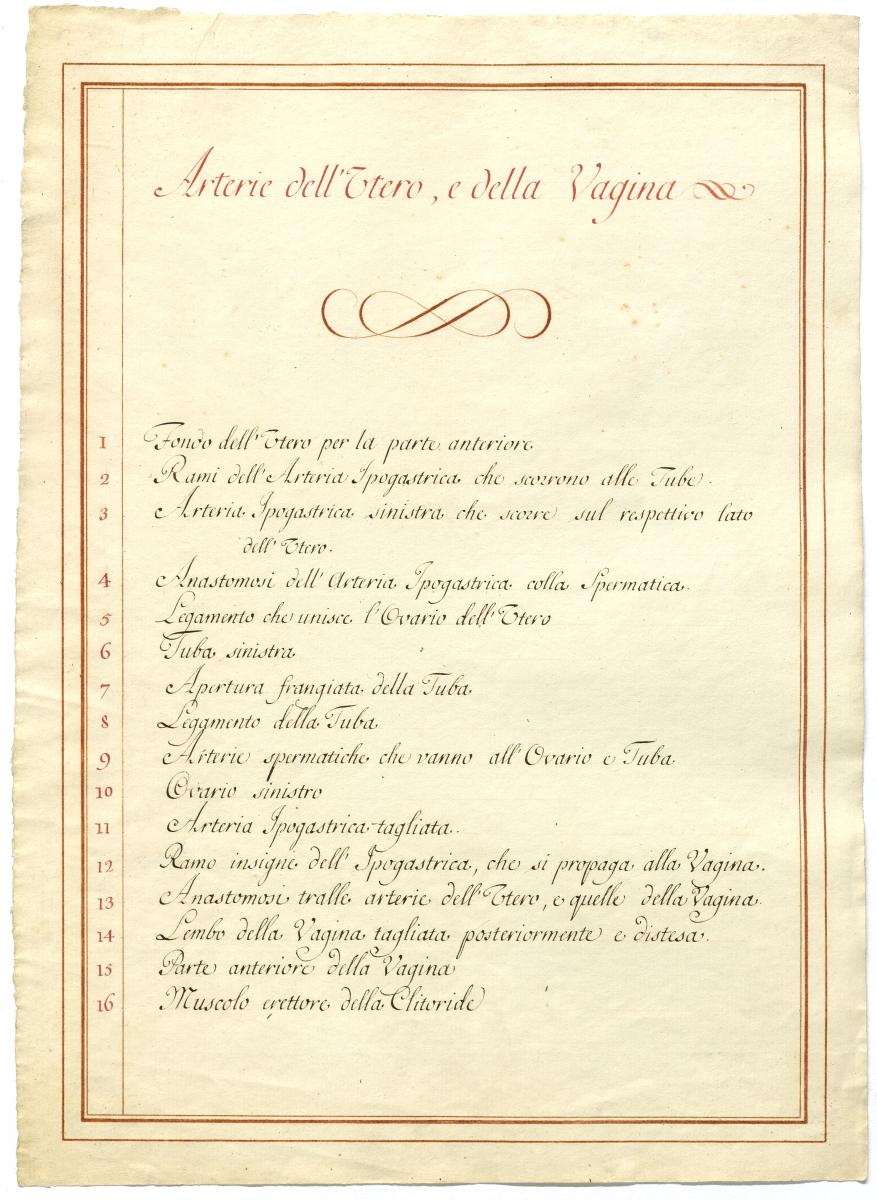 Arterie dell'Utero, e della Vagina
1 Fondo dell'Utero per la parte anteriore
2 Rami dell'Arteria Ipogastrica che scorrono alle Tube.
3 Arteria Ipogastrica sinistra che scorre sul respettivo lato
dell'Utero.
4 Anastomosi dell'Arteria Ipogastrica colla Spermatica.
5 Legamento che unisce l'Ovario dell'Utero
6 Tuba sinistra
7 Apertura frangiata della Tuba
8 Legamento della Tuba
9 Arterie spermatiche che vanno all'Ovario e Tuba
10 Ovario sinistro
11 Arteria Ipogastrica tagliata.
12 Ramo insigne dell'Ipogastrica, che si propaga alla Vagina.
13 Anastomosi tralle arterie dell'Utero, e quelle della Vagina.
14 Lembo della Vagina tagliata posteriormente e distesa.
15 Parte anteriore della Vagina
16 Muscolo erettore della Clitoride